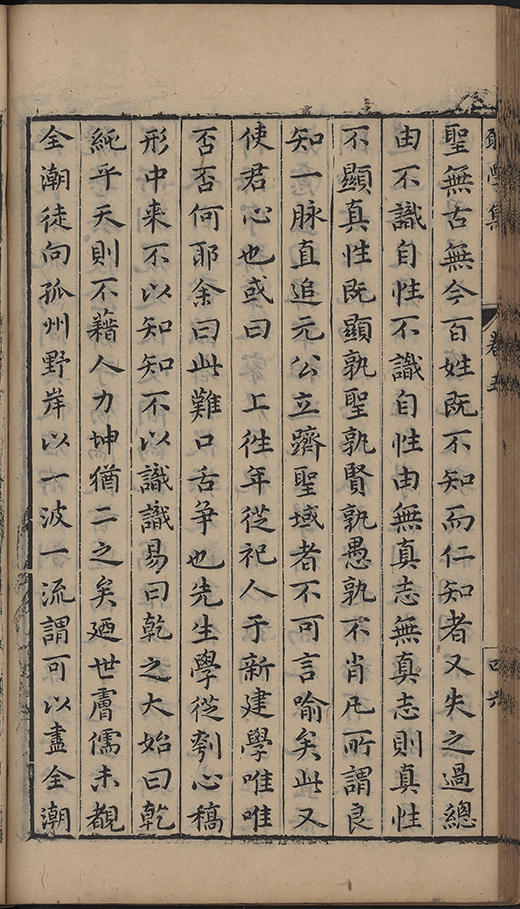 聖無古無今百姓既不知而仁知者又失之過總
由不識自性不識自性由無真志無真志則真性
不顯真性既顯孰聖孰賢孰愚孰不肖凡所謂良
知一脉直追元公立躋聖域者不可言喻矣此又
使君心也或曰 上徃年從祀人于新建學唯唯
否否何耶余曰此難口舌争也先生學從刳心稿
形中来不以知知不以識識易曰乾之大始曰乾
純乎天則不藉人力坤猶二之矣廼世膚儒未覩
全潮徒向孤州野岸以一波一流謂可以盡全潮
卷五
四六